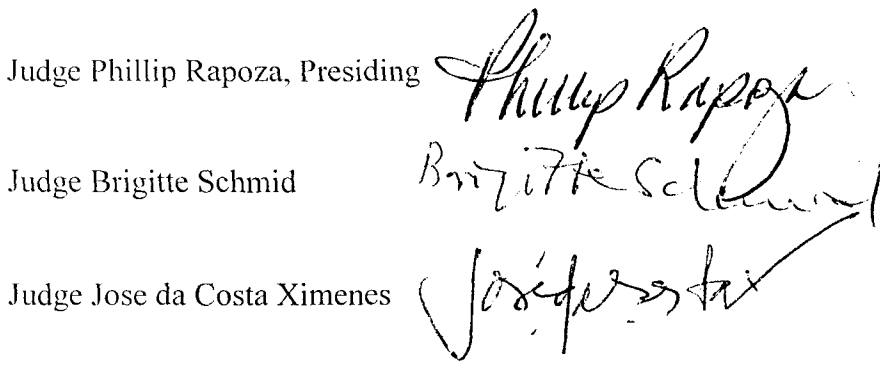 Judge Phillip Rapoza, Presiding Phillip Rapoza
Judge Brigitte Schmid Brigitte Schmid
Judge Jose da Costa Ximenes José